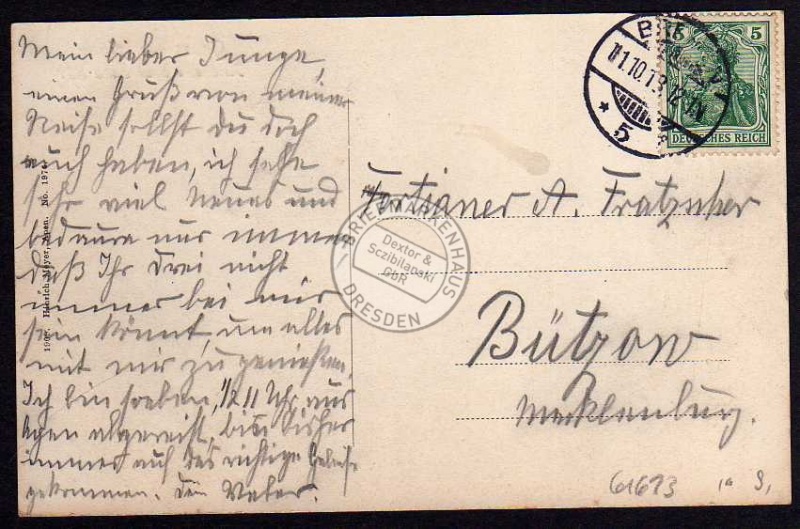 Mein lieber Junge
einen Gruß von meiner
Reise sollst Du doch
auch haben, ich sehe
sehr viel Neues und
bedaure nur immer
daß Ihr Drei nicht
immer bei mir
sein könnt, um alles
mit mir zu genießen.
Ich bin soeben, 1/2 11 Uhr aus
abgereist, bis bisher
immer auf das richtige Geleise
gekommen. Dein Vater.
1907. Heinrich Meyer, No. 1974
5
DEUTSCHES REICH
11.10.13.
* 5 *
Tertianer A. Fratzscher
Bützow
Mecklenburg.
BRIEFMARKENHAUS
Dextor &
Sczibilanski
GbR
DRESDEN
61673